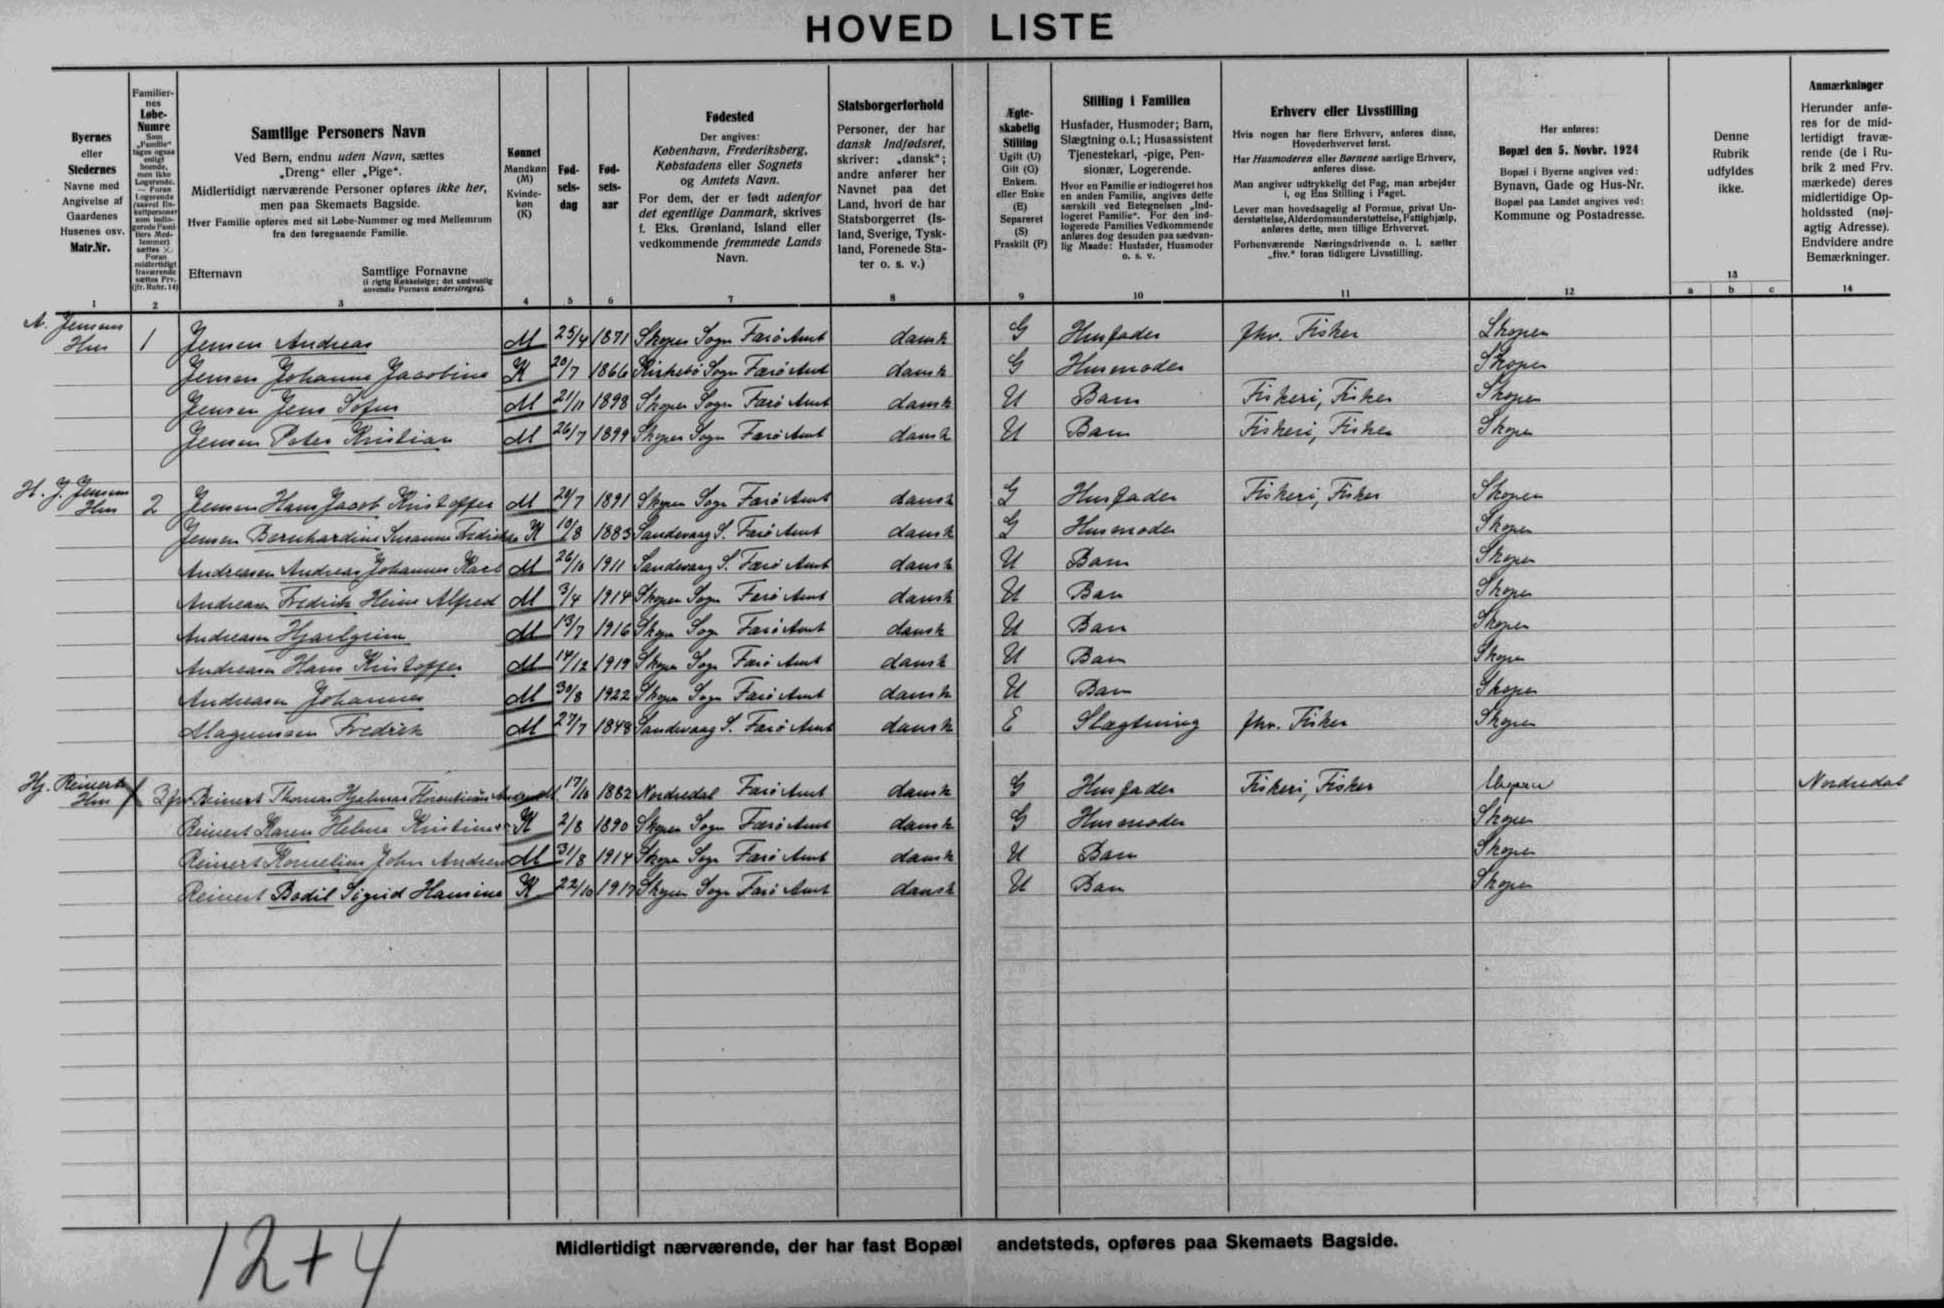 HOVED LISTE
Byernes
eller
Stedernes
Navne med
Angivelse af
Gaardenes
Husenes osv.
Matr.Nr.
1
Familier-
nes
Løbe-
Numre
2
Samtlige Personers Navn
Ved Børn, endnu uden Navn, sættes
„Dreng" eller „Pige".
Midlertidigt nærværende Personer opføres ikke her,
men paa Skemaets Bagside.
Hver Familie opføres med sit Løbe-Nummer og med Mellemrum
fra den foregaaende Familie.
Efternavn
Samtlige Fornavne
(i rigtig Rækkefølge; det sædvanlig
anvendte Fornavn understreges).
3
Kønnet
Mandkøn
(M)
Kvinde-
køn
(K)
4
Fød-
sels-
dag
5
Fød-
sels-
aar
6
Fødested
Der angives:
København, Frederiksberg,
Købstadens eller Sognets
og Amtets Navn.
For dem, der er født udenfor
det egentlige Danmark, skrives
f. Eks. Grønland, Island eller
vedkommende fremmede Lands
Navn.
7
Statsborgerforhold
Personer, der har
dansk Indfødsret,
skriver: „dansk";
andre anfører her
Navnet paa det
Land, hvori de har
Statsborgerret (Is-
land, Sverige, Tysk-
land, Forenede Sta-
ter o. s. v.)
8
Ægte-
skabelig
Stilling
Ugift (U)
Gift (G)
Enkem.
eller Enke
(E)
Separeret
(S)
Fraskilt (F)
9
Stilling i Familien
Husfader, Husmoder; Barn,
Slægtning o.l.; Husassistent
Tjenestekarl, -pige, Pen-
sionær, Logerende.
Hvor en Familie er indlogeret hos
en anden Familie, angives dette
særskilt ved Betegnelsen „Ind-
logeret Familie". For den ind-
logerede Families Vedkommende
anføres dog desuden paa sædvan-
lig Maade: Husfader, Husmoder
o. s. v.
10
Erhverv eller Livsstilling
Hvis nogen har flere Erhverv, anføres disse,
Hovederhvervet først.
Har Husmoderen eller Børnene særlige Erhverv,
anføres disse.
Man angiver udtrykkelig det Fag, man arbejder
i, og Ens Stilling i Faget.
Lever man hovedsagelig af Formue, privat Un-
derstøttelse, Alderdomsunderstøttelse, Fattighjælp,
anføres dette, men tillige Erhvervet.
Forhenværende Næringsdrivende o. l. sætter
„fhv." foran tidligere Livsstilling.
11
Her anføres:
Bopæl den 5. Novbr. 1924
Bopæl i Byerne angives ved:
Bynavn, Gade og Hus-Nr.
Bopæl paa Landet angives ved:
Kommune og Postadresse.
12
Denne
Rubrik
udfyldes
ikke.
13
a b c
Anmærkninger
Herunder anfø-
res for de mid-
lertidigt fravæ-
rende (de i Ru-
brik 2 med Frv.
mærkede) deres
midlertidige Op-
holdssted (nøj-
agtig Adresse).
Endvidere andre
Bemærkninger.
14
A. Jensens Hus 1 Jensen Andreas M 25/4 1871 Skopen Sogn Færø Amt dansk G Husfader fhv. Fisker Skopen
Jensen Johanne Jacobine K 20/7 1866 Kirkebø Sogn Færø Amt dansk G Husmoder Skopen
Jensen Jens Sofus M 21/11 1898 Skopen Sogn Færø Amt dansk U Barn Fiskeri, Fisker Skopen
Jensen Peter Kristian M 26/7 1899 Skopen Sogn Færø Amt dansk U Barn Fiskeri, Fisker Skopen
H. J. Jensens Hus 2 Jensen Hans Jacob Kristoffer M 1891 Skopen Sogn Færø Amt dansk G Husfader Fiskeri, Fisker Skopen
Jensen Bernhardine Susanne K 10/8 1885 Sandevaag S. Færø Amt dansk G Husmoder Skopen
Andreasen Andreas Johannes Karl M 26/10 1911 Sandevaag S. Færø Amt dansk U Barn Skopen
Andreasen Fredrik Heine Alfred M 3/4 1914 Skopen Sogn Færø Amt dansk U Barn Skopen
Andreasen Hjarlgrim M 13/7 1916 Skopen Sogn Færø Amt dansk U Barn Skopen
Andreasen Hans Kristoffer M 14/12 1919 Skopen Sogn Færø Amt dansk U Barn Skopen
Andreasen Johannes M 30/8 1922 Skopen Sogn Færø Amt dansk U Barn Skopen
Magnussen Fredrik M 27/7 1848 Sandevaag S. Færø Amt dansk E Slægtning fhv. Fisker Skopen
Hj. Reinerts Hus 3 Reinert Thomas Hjalmar M 17/10 1882 Nordredal Færø Amt dansk G Husfader Fiskeri, Fisker Nordredal
Reinert Karen Helene Kristine K 2/8 1890 Skopen Sogn Færø Amt dansk G Husmoder Skopen
Reinert Kornelius John Andreas M 31/8 1914 Skopen Sogn Færø Amt dansk U Barn Skopen
Reinert Bodil Sigrid Hansine K 22/10 1917 Skopen Sogn Færø Amt dansk U Barn Skopen
12 + 4
Midlertidigt nærværende, der har fast Bopæl andetsteds, opføres paa Skemaets Bagside.